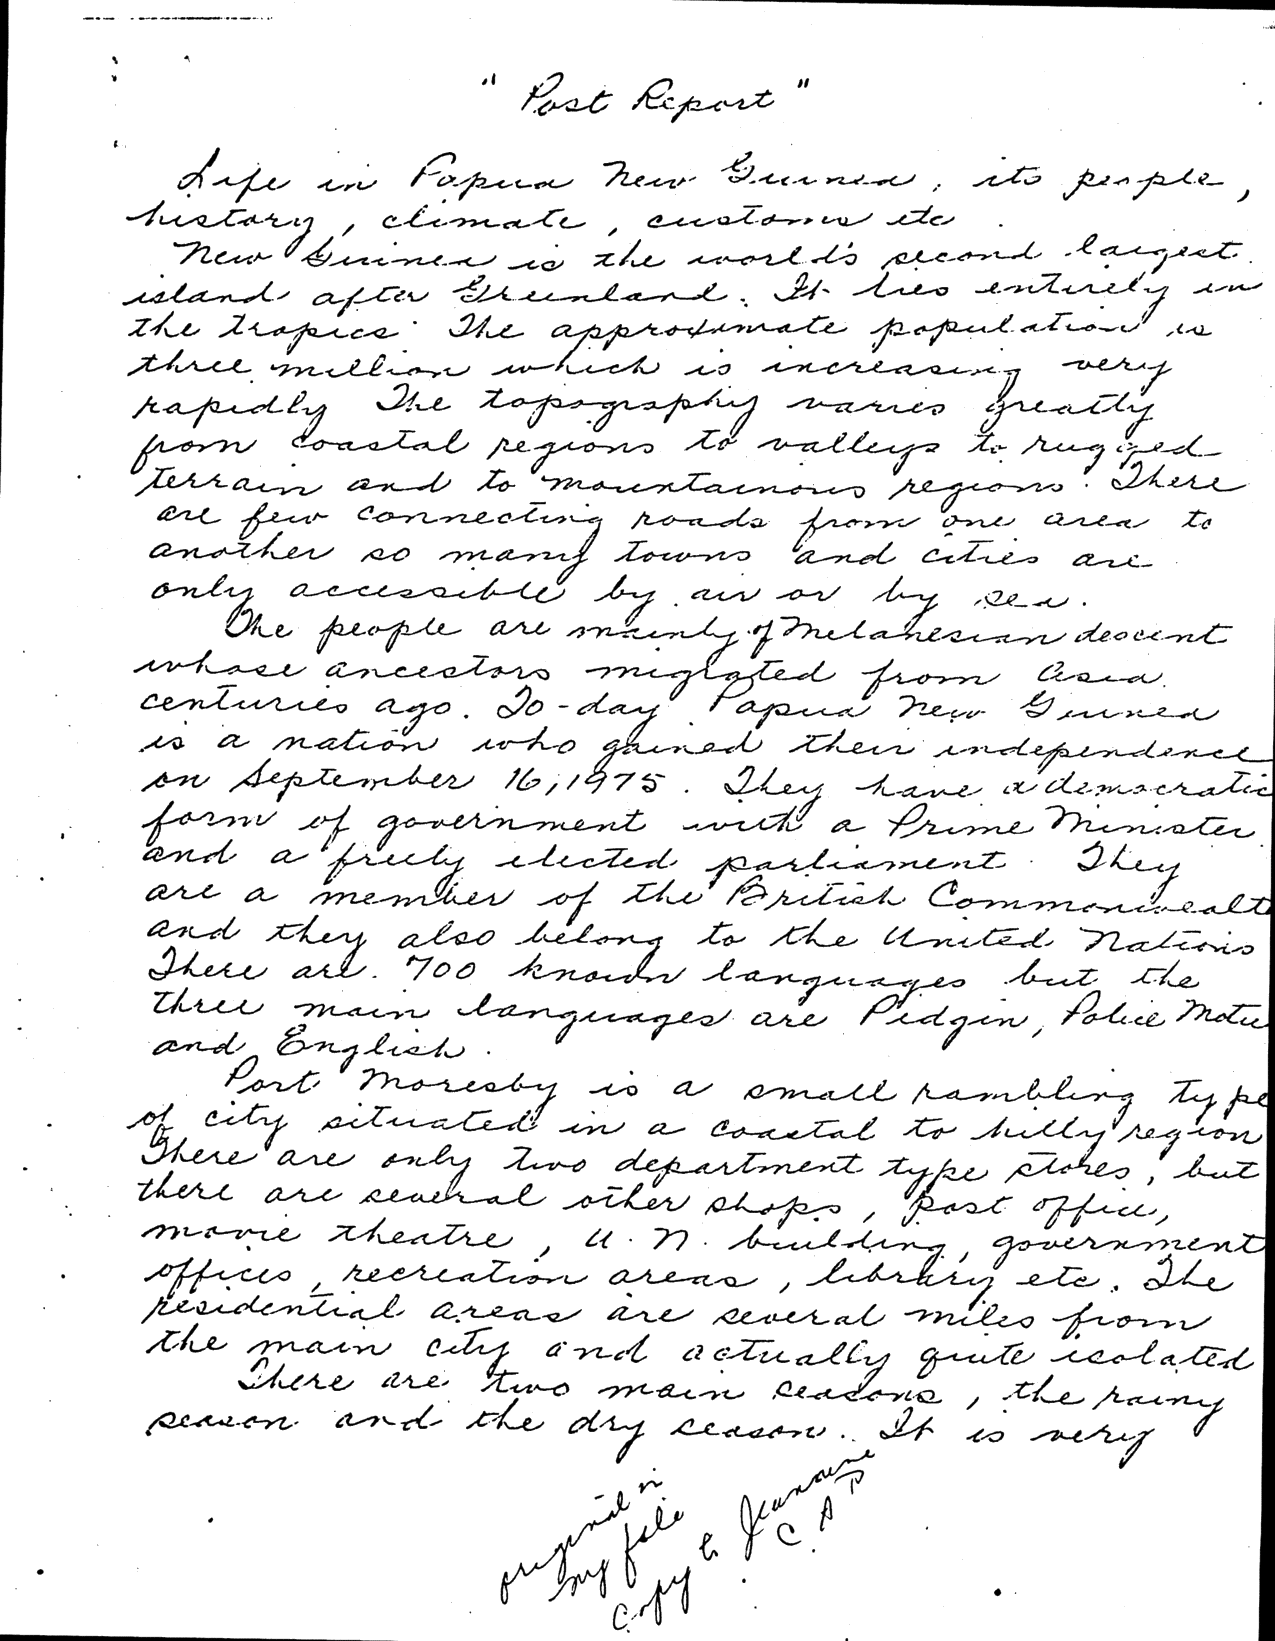 " Post Report "
Life in Papua New Guinea, its people,
history, climate, customs etc.
New Guinea is the world's second largest
island after Greenland. It lies entirely in
the tropics. The approximate population is
three million which is increasing very
rapidly The topography varies greatly
from coastal regions to valleys to rugged
terrain and to mountainous regions. There
are few connecting roads from one area to
another so many towns and cities are
only accessible by air or by sea.
The people are mainly of Melanesian descent
whose ancestors migrated from Asia
centuries ago. To-day Papua New Guinea
is a nation who gained their independence
on September 16, 1975. They have a democratic
form of government with a Prime Minister
and a freely elected parliament. They
are a member of the British Commonwealt
and they also belong to the United Nations
There are 700 known languages but the
three main languages are Pidgin, Police Motu
and English.
Port Moresby is a small rambling type
of city situated in a coastal to hilly region
There are only two department type stores, but
there are several other shops, post office,
movie theatre, U.N. building, government
offices, recreation areas, library etc. The
residential areas are several miles from
the main city and actually quite isolated
There are two main seasons, the rainy
season and the dry season. It is very
original in
my file
Copy to Jeannine
C A P